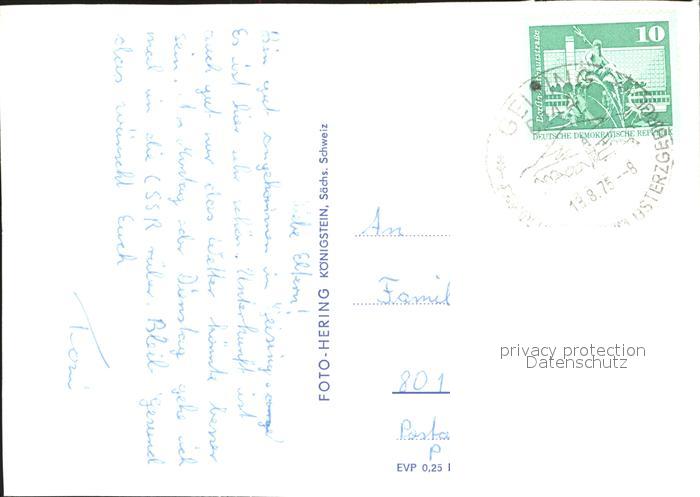 Liebe Eltern!
Bin gut angekommen in Geising.
Es ist hier sehr schön. Unterkunft ist
auch gut nur das Wetter könnte besser
sein. Montag oder Dienstag gehe ich
mal in die CSSR rüber. Bleibt gesund
das wünscht Euch
Toni
FOTO-HERING KÖNIGSTEIN, Sächs. Schweiz
10
DEUTSCHE DEMOKRATISCHE REPUBLIK
GEISING
OSTERZGEB
13.8.75--8
An
Famil
801
Posta
P
EVP 0,25
privacy protection
Datenschutz